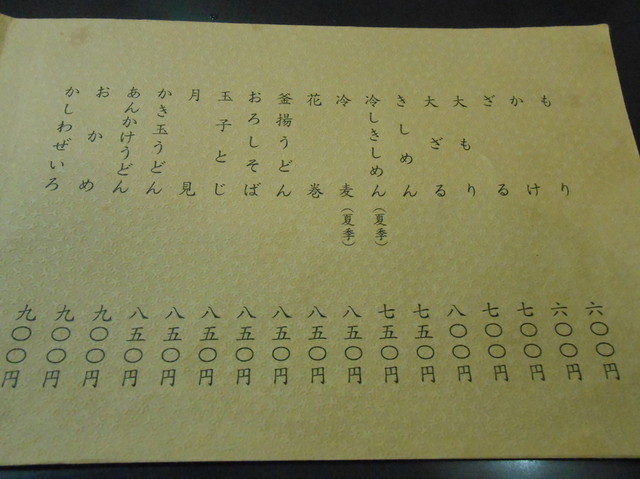 もり 六〇〇円
かけ 六〇〇円
ざる 七〇〇円
大もり 七〇〇円
大ざる 八〇〇円
きしめん 七五〇円
冷しきしめん(夏季) 七五〇円
冷麦(夏季) 八五〇円
花巻 八五〇円
釜揚うどん 八五〇円
おろしそば 八五〇円
玉子とじ 八五〇円
月見 八五〇円
かき玉うどん 八五〇円
あんかけうどん 九〇〇円
おかめ 九〇〇円
かしわぜいろ 九〇〇円